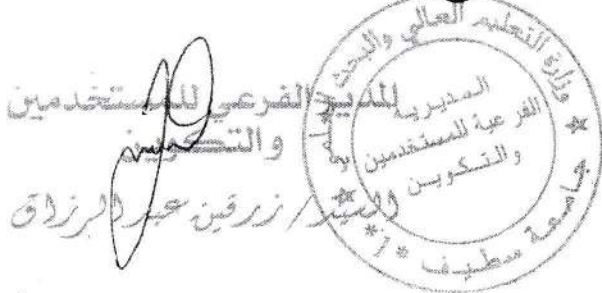 المدير الفرعي للمستخدمين
والتكوين
السيد/ زرقين عبد الرزاق
وزارة التعليم العالي والبحث العلمي
جامعة سطيف
المديرية
الفرعية للمستخدمين
والتكوين